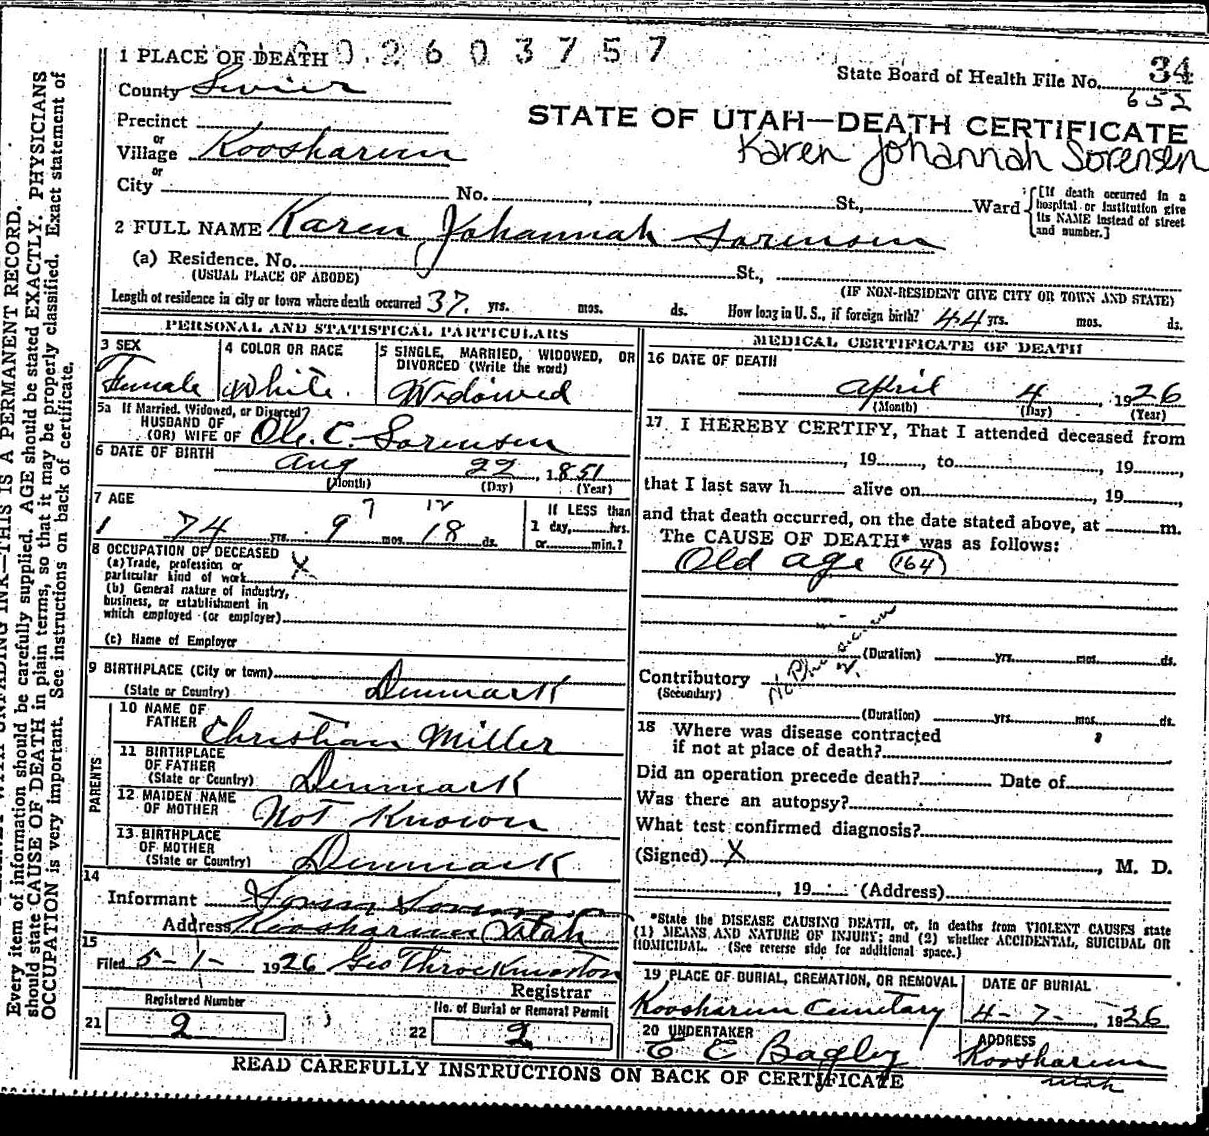 1 PLACE OF DEATH 0 2 6 0 3 7 5 7
State Board of Health File No. 34
652
County Sevier
STATE OF UTAH—DEATH CERTIFICATE
Precinct
or
Village Koosharem
Karen Johannah Sorensen
or
City No. , St., Ward
[If death occurred in a hospital or institution give its NAME instead of street and number.]
2 FULL NAME Karen Johannah Sorensen
(a) Residence. No. St.,
(USUAL PLACE OF ABODE)
(IF NON-RESIDENT GIVE CITY OR TOWN AND STATE)
Length of residence in city or town where death occurred 37. yrs. mos. ds. How long in U. S., if foreign birth? 44 yrs. mos. ds.
PERSONAL AND STATISTICAL PARTICULARS
3 SEX
Female
4 COLOR OR RACE
White.
5 SINGLE, MARRIED, WIDOWED, OR
DIVORCED (Write the word)
Widowed
5a If Married, Widowed, or Divorced?
HUSBAND OF
(OR) WIFE OF Ole. C. Sorensen
6 DATE OF BIRTH Aug 22, 1851
(Month) (Day) (Year)
7 AGE 7 12
1 74 yrs. 9 mos. 18 ds.
If LESS than
1 day, hrs.
or min.?
8 OCCUPATION OF DECEASED
(a) Trade, profession or
particular kind of work X
(b) General nature of industry,
business, or establishment in
which employed (or employer)
(c) Name of Employer
9 BIRTHPLACE (City or town)
(State or Country) Denmark
PARENTS
10 NAME OF
FATHER Christian Miller
11 BIRTHPLACE
OF FATHER
(State or Country) Denmark
12 MAIDEN NAME
OF MOTHER Not Known
13 BIRTHPLACE
OF MOTHER
(State or Country) Denmark
14
Informant
Address Koosharem Utah
15
Filed 5-1-1926 Geo Throckmorton
Registrar
Registered Number
21 2
No. of Burial or Removal Permit
22 2
MEDICAL CERTIFICATE OF DEATH
16 DATE OF DEATH
April 4, 1926
(Month) (Day) (Year)
17 I HEREBY CERTIFY, That I attended deceased from
, 19 , to , 19 ,
that I last saw h alive on , 19 ,
and that death occurred, on the date stated above, at m.
The CAUSE OF DEATH* was as follows:
Old age (164)
(Duration) yrs. mos. ds.
Contributory No Physician
(Secondary)
(Duration) yrs. mos. ds.
18 Where was disease contracted
if not at place of death?
Did an operation precede death? Date of
Was there an autopsy?
What test confirmed diagnosis?
(Signed) X , M. D.
, 19 (Address)
*State the DISEASE CAUSING DEATH, or, in deaths from VIOLENT CAUSES state
(1) MEANS AND NATURE OF INJURY; and (2) whether ACCIDENTAL, SUICIDAL OR
HOMICIDAL. (See reverse side for additional space.)
19 PLACE OF BURIAL, CREMATION, OR REMOVAL
Koosharem Cemetary
DATE OF BURIAL
4-7-, 1926
20 UNDERTAKER
E C Bagley
ADDRESS
Koosharem
Utah
READ CAREFULLY INSTRUCTIONS ON BACK OF CERTIFICATE
UNFADING INK—THIS IS A PERMANENT RECORD.
Every item of information should be carefully supplied. AGE should be stated EXACTLY. PHYSICIANS
should state CAUSE OF DEATH in plain terms, so that it may be properly classified. Exact statement of
OCCUPATION is very important. See instructions on back of certificate.